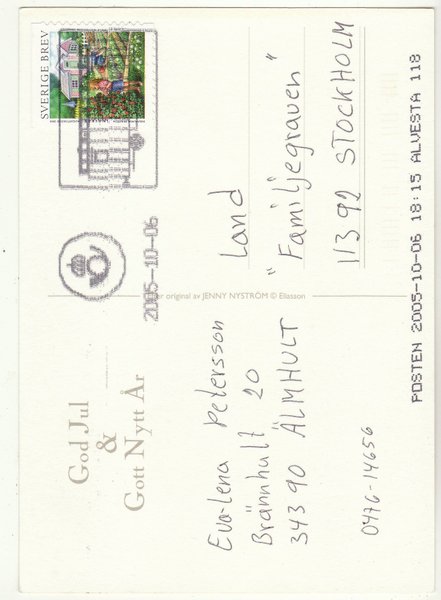 God Jul
&
Gott Nytt År
Eva-Lena Petersson
Brännhult 20
343 90 ÄLMHULT
0476-14656
er original av JENNY NYSTRÖM © Eliasson
SVERIGE BREV
2005-10-06
Land
"Familjegraven"
113 92 STOCKHOLM
POSTEN 2005-10-06 18:15 ALVESTA 118